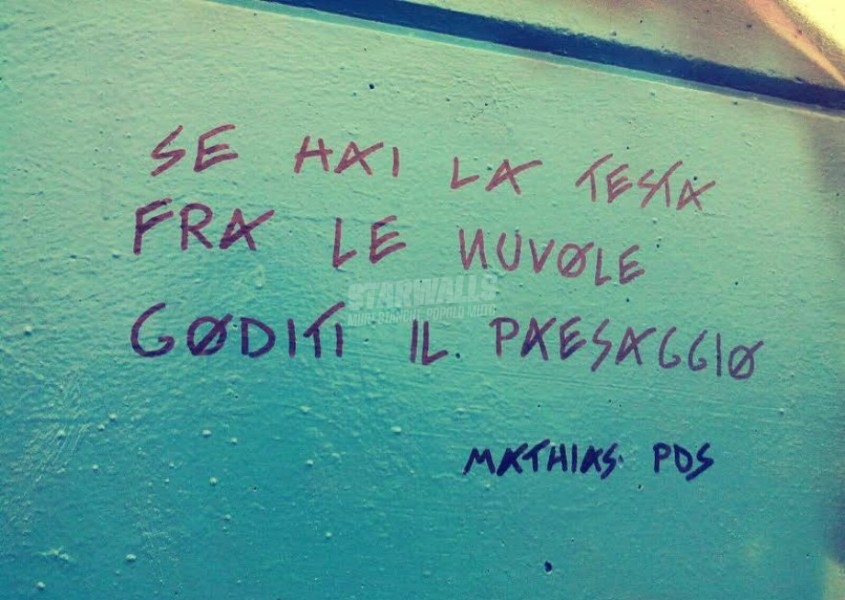 SE HAI LA TESTA
FRA LE NUVOLE
STARWALLS
MURI BIANCHI POPOLO MUTO
GØDITI IL PAESAGGIØ
MATHIAS PDS